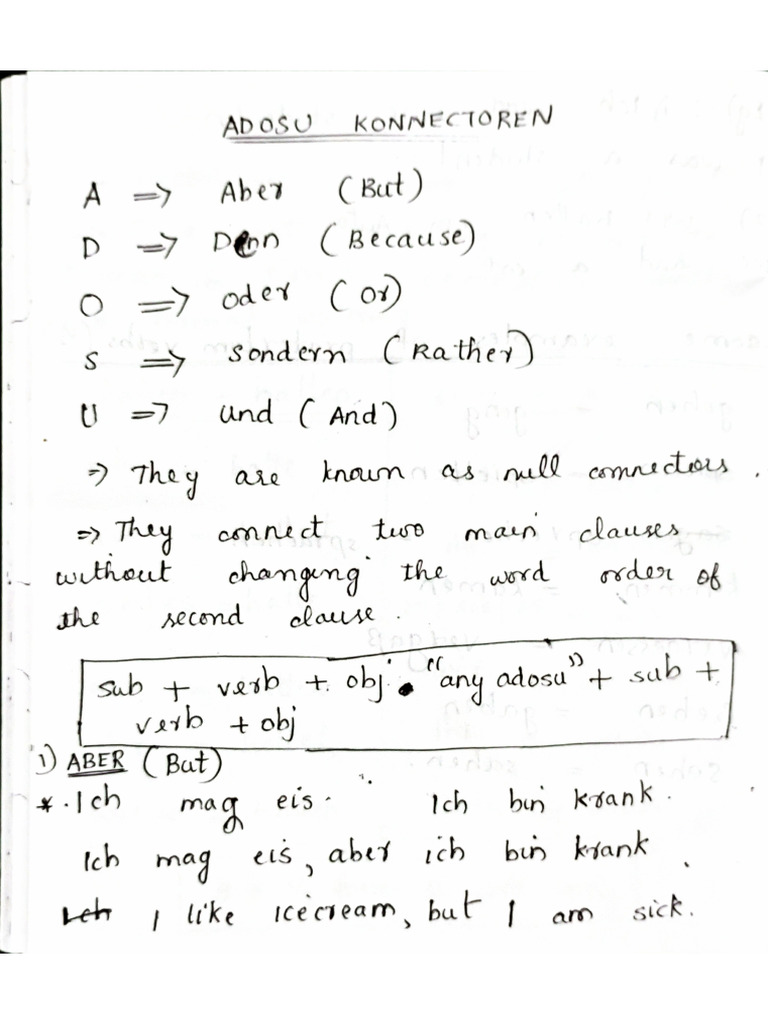 ADOSU KONNECTOREN
A => Aber (But)
D => Denn (Because)
O => oder (Or)
S => Sondern (Rather)
U => und (And)
=> They are known as null connectors.
=> They connect two main clauses
without changing the word order of
the second clause.
sub + verb + obj. "any adosu" + sub +
verb + obj
1) ABER (But)
* . Ich mag eis. Ich bin krank.
Ich mag eis, aber ich bin krank.
I like icecream, but I am sick.